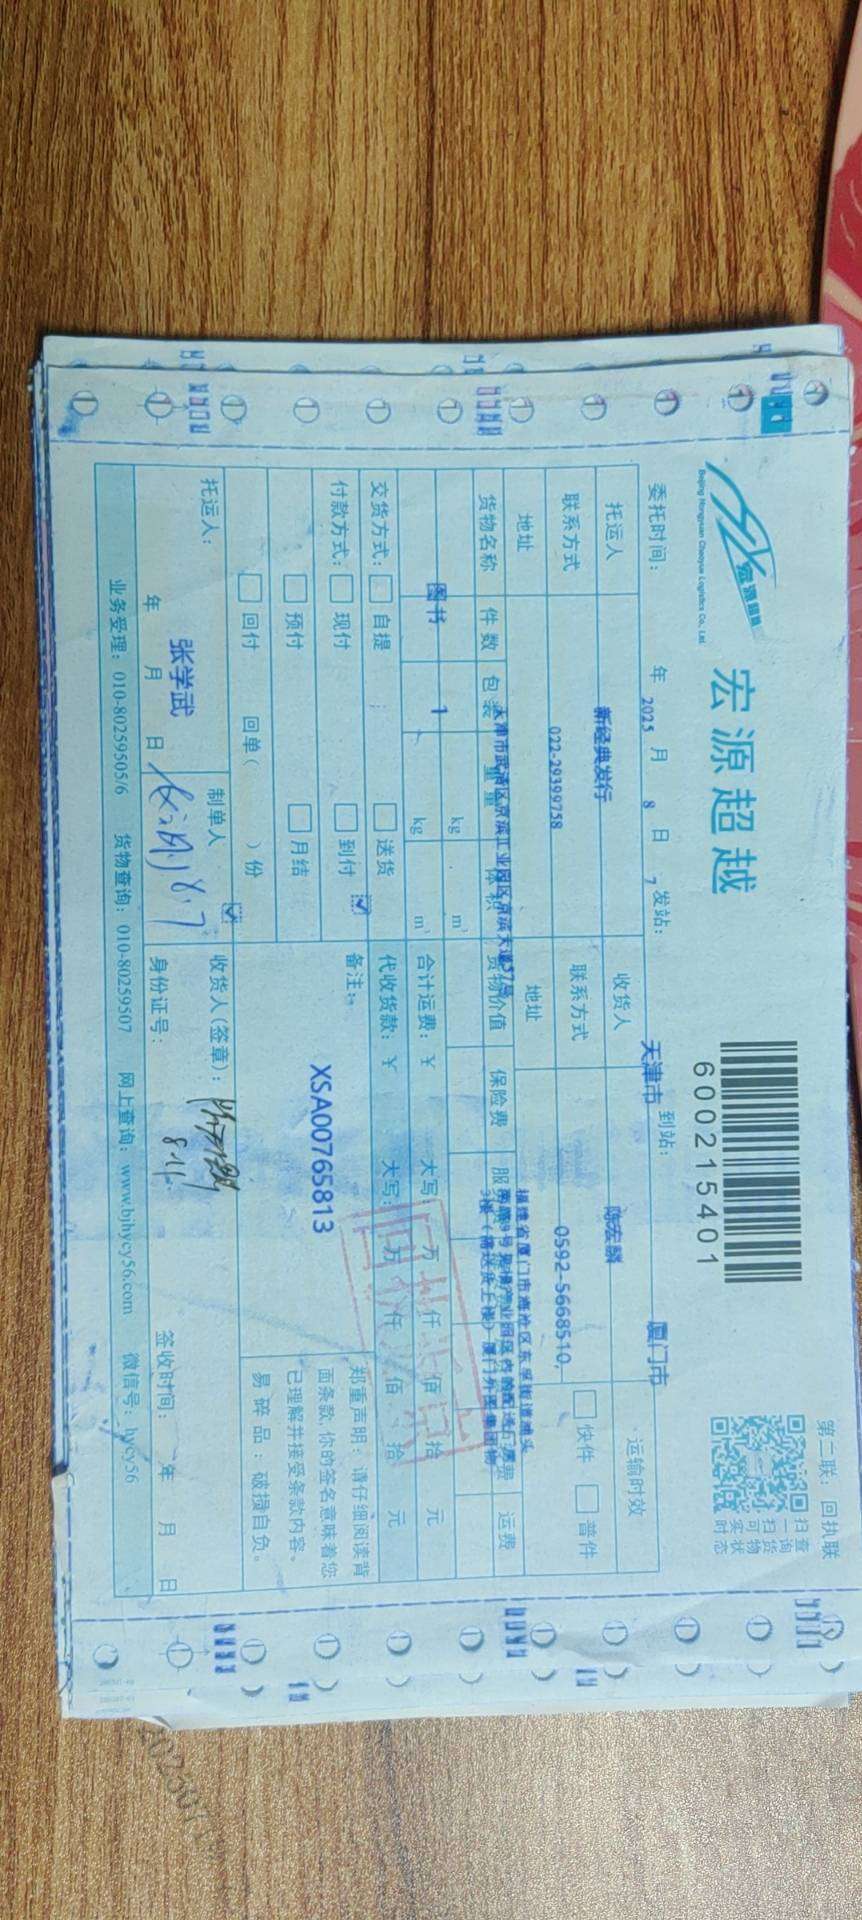 第二联：回执联
宏源超越
Beijing Hongyuan Chaoyue Logistics Co., Ltd.
宏源超越
600215401
扫一扫 查询货物实时状态
委托时间： 2025 年 8 月 7 日 发站： 天津市 到站： 厦门市
托运人 新经典发行 收货人 陈宏麟 运输时效
联系方式 022-29399758 联系方式 0592-5668510, 快件 普件
地址 天津市武清区京滨工业园区京滨大道57号 地址 福建省厦门市海沧区东孚街道
3楼（需送货上楼）厦门外图集团
货物名称 件数 包装 重量 体积 货物价值 保险费 运费
图书 1 kg m³
kg m³ 合计运费：￥ 大写 万 仟 佰 拾 元
交货方式： 自提 送货 代收货款：￥ 大写： 万 仟 佰 拾 元
付款方式： 现付 到付 备注：
预付 月结
回付 回单（ ）份
XSA00765813
郑重声明：请仔细阅读背
面条款，你的签名意味着您
已理解并接受条款内容。
易碎品：破损自负。
托运人： 张学武 制单人 8.7 收货人（签章）： 8.11
年 月 日 身份证号： 签收时间： 年 月 日
业务受理：010-80259505/6 货物查询：010-80259507 网上查询：www.bjhycy56.com 微信号：hycy56